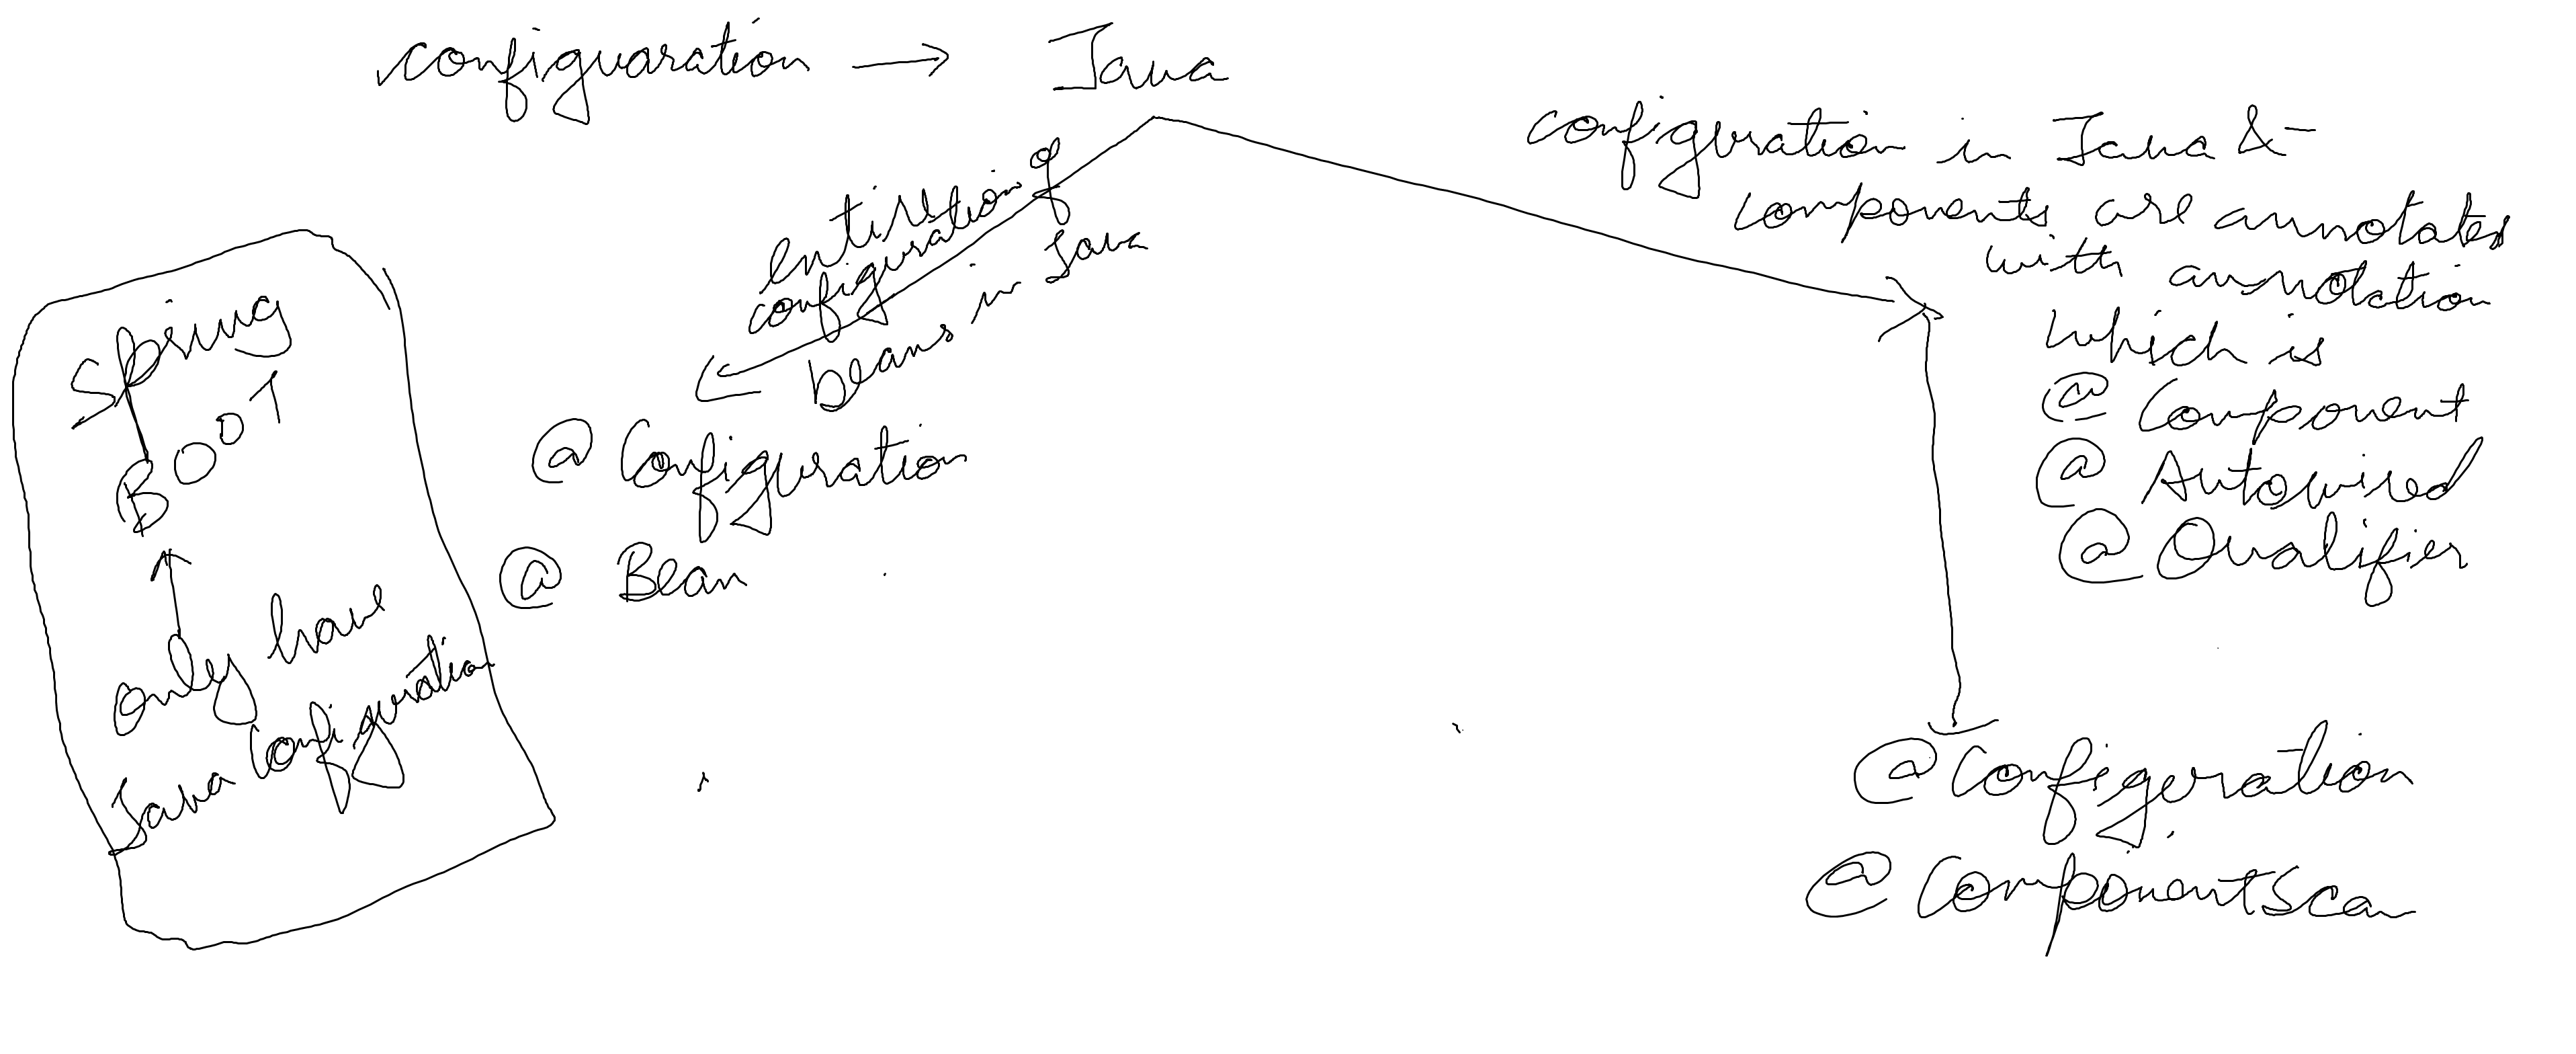 configuaration → Java
entire
configuration of
beans in Java
@ Configuration
@ Bean
configuration in Java &
components are annotated
with annotation
which is
@ Component
@ Autowired
@ Qualifier
@ Configeration
@ ComponentScan
Spring
BOOT
only have
Java Configuration